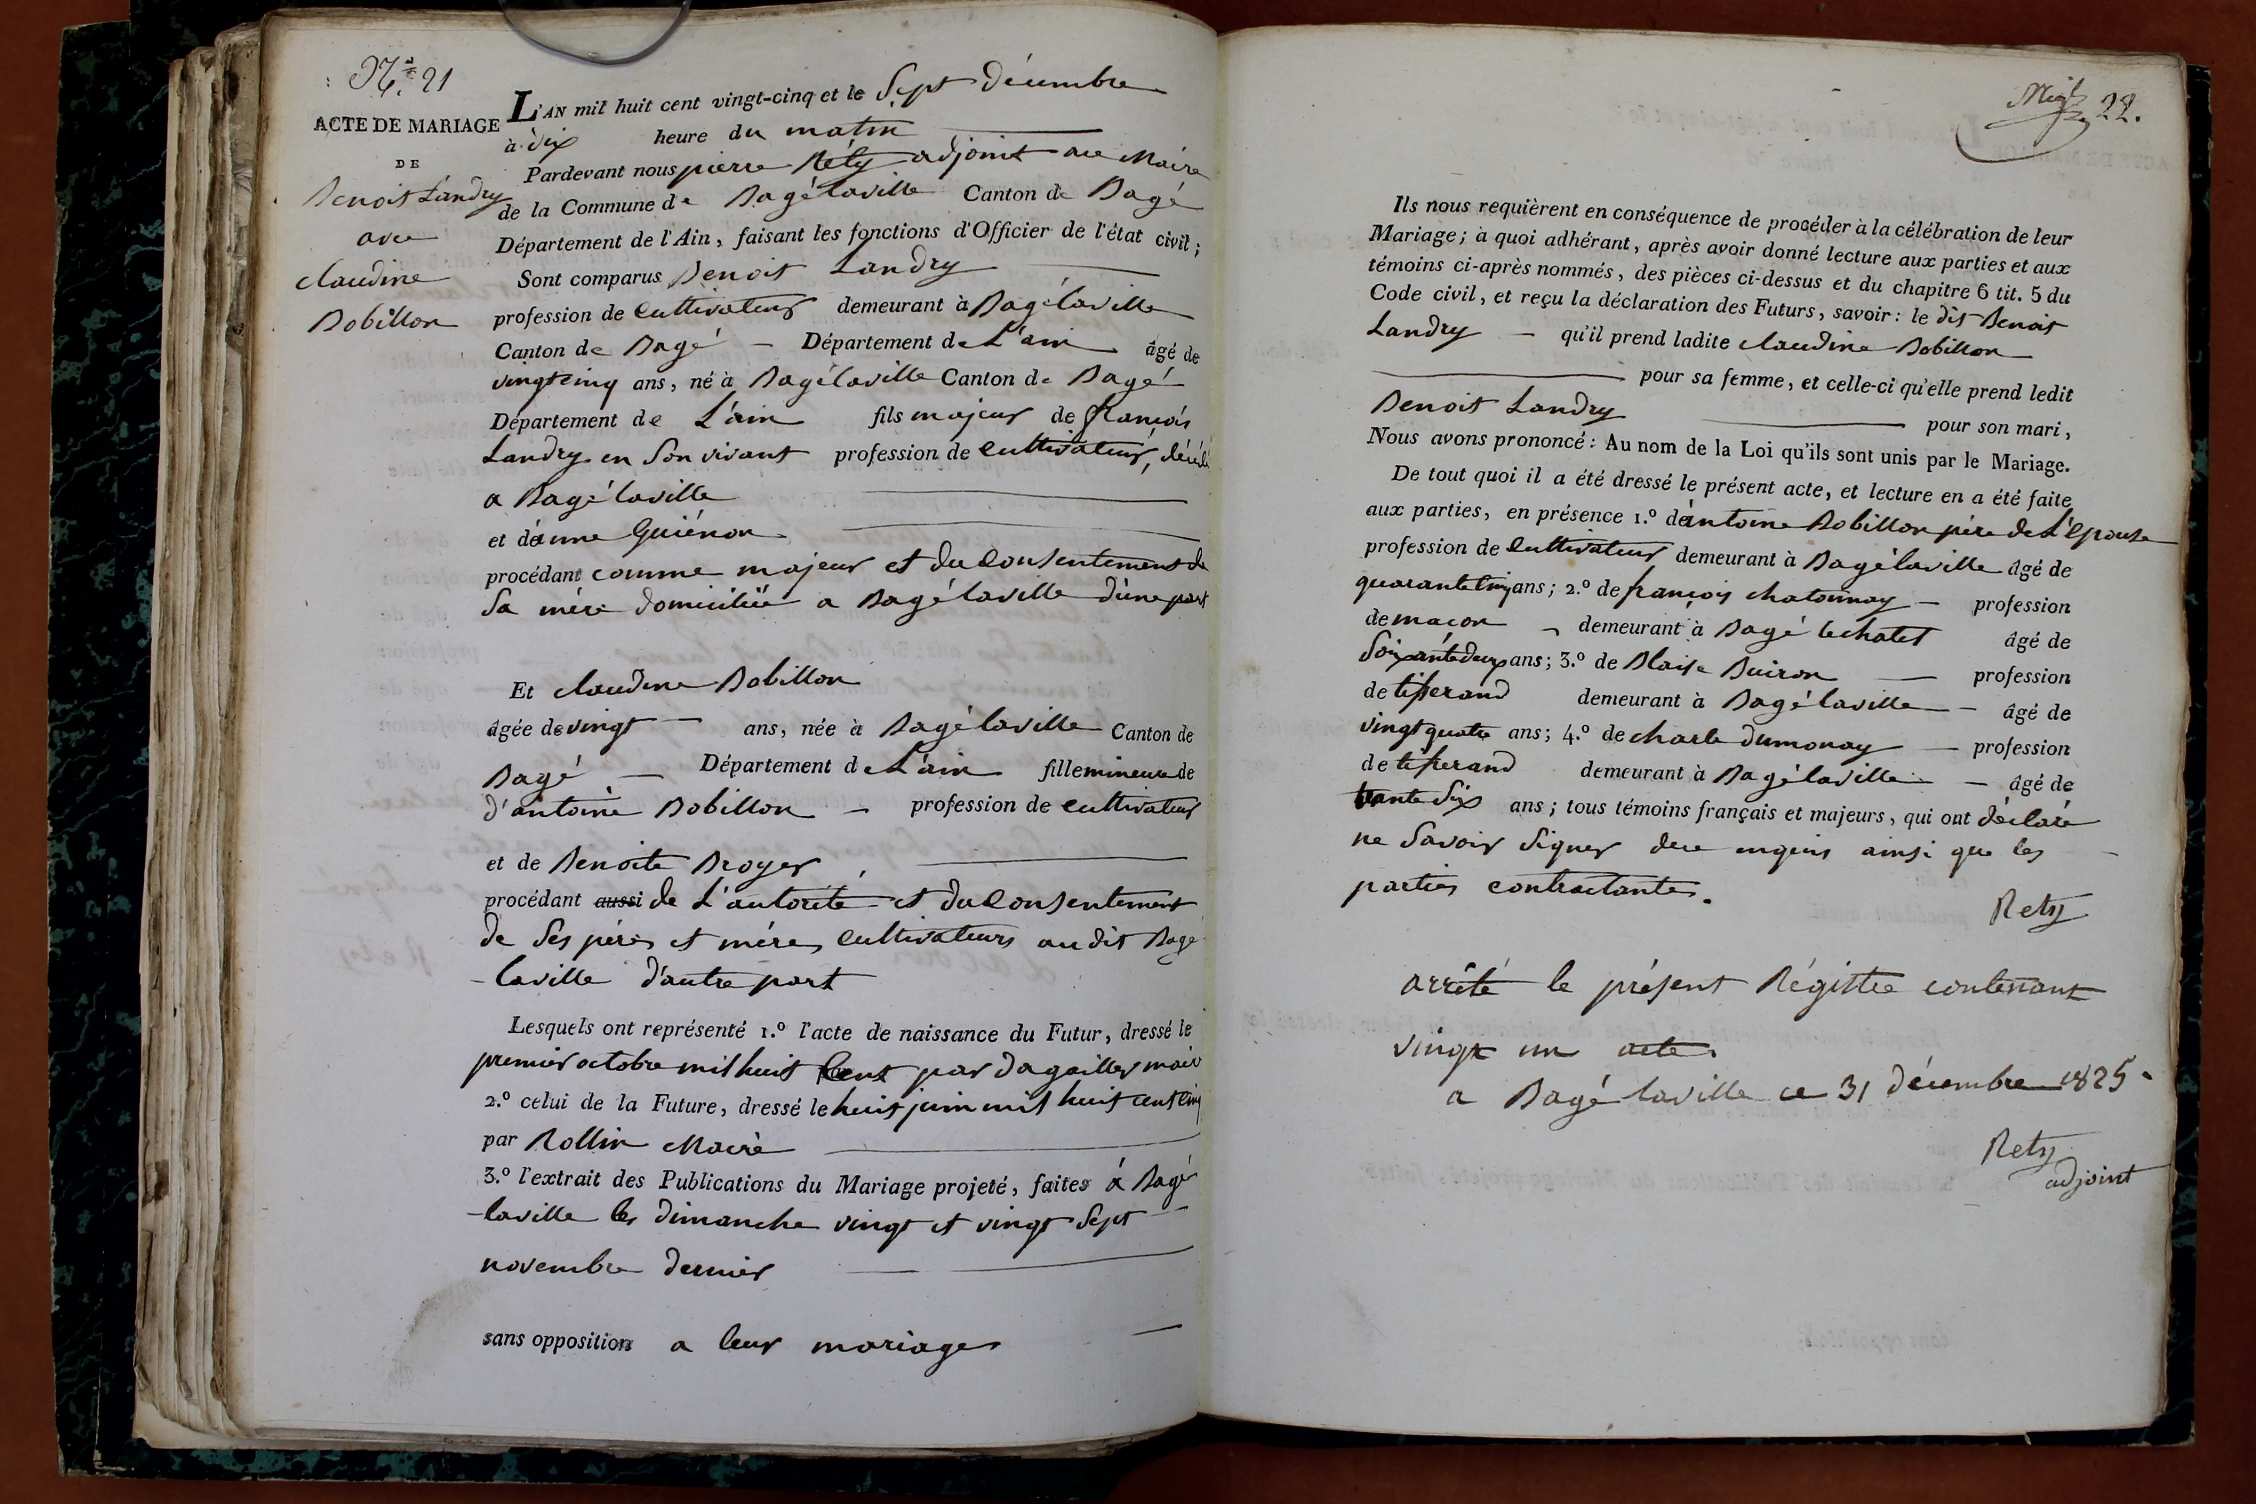 N.º 21
ACTE DE MARIAGE
DE
Benoit Landry
avec
claudine
Bobillon
L'AN mil huit cent vingt-cinq et le Sept décembre
à dix heure du matin
Pardevant nous pierre Réty adjoint au Maire
de la Commune de Bagé laville Canton de Bagé
Département de l'Ain, faisant les fonctions d'Officier de l'état civil;
Sont comparus Benoit Landry
profession de cultivateur demeurant à Bagé laville
Canton de Bagé Département de L'ain âgé de
vingt cinq ans, né à Bagé laville Canton de Bagé
Département de L'ain fils majeur de françois
Landry en Son vivant profession de cultivateur, décédé
a Bagé laville
et d'anne Guiénon
procédant comme majeur et du Consentement de
Sa mère domiciliée a Bagé laville d'une part
Et claudine Bobillon
âgée de vingt ans, née à Bagé laville Canton de
Bagé Département de L'ain fille mineure de
d'antoine Bobillon profession de cultivateur
et de Benoite Broyer
procédant aussi de L'autorité et du Consentement
de Ses père et mère, cultivateurs au dit Bagé
-laville d'autre part
Lesquels ont représenté 1.º l'acte de naissance du Futur, dressé le
premier octobre mil huit Cent par dagailler maire
2.º celui de la Future, dressé le huit juin mil huit cent cinq
par Rollin Maire
3.º l'extrait des Publications du Mariage projeté, faites à Bagé
-laville les dimanche vingt et vingt Sept
novembre dernier
sans opposition a leur mariage
22.
Ils nous requièrent en conséquence de procéder à la célébration de leur
Mariage; à quoi adhérant, après avoir donné lecture aux parties et aux
témoins ci-après nommés, des pièces ci-dessus et du chapitre 6 tit. 5 du
Code civil, et reçu la déclaration des Futurs, savoir: le dit Benoit
Landry qu'il prend ladite claudine Bobillon
pour sa femme, et celle-ci qu'elle prend ledit
Benoit Landry pour son mari,
Nous avons prononcé: Au nom de la Loi qu'ils sont unis par le Mariage.
De tout quoi il a été dressé le présent acte, et lecture en a été faite
aux parties, en présence 1.º d'antoine Bobillon père de L'epouse
profession de Cultivateur demeurant à Bagé laville âgé de
quarante cinq ans; 2.º de françois chatonnay profession
de maçon demeurant à Bagé lechatel âgé de
Soixante deux ans; 3.º de Blaise Buiron profession
de tisserand demeurant à Bagé laville âgé de
vingt quatre ans; 4.º de charle dumonay profession
de tisserand demeurant à Bagé laville âgé de
trante Six ans; tous témoins français et majeurs, qui ont déclaré
ne Savoir Signer de ce enquis ainsi que les
parties contractantes.
Rety
arrêté le présent Régistre contenant
vingt un acte.
a Bagé laville ce 31 décembre 1825.
Rety
adjoint